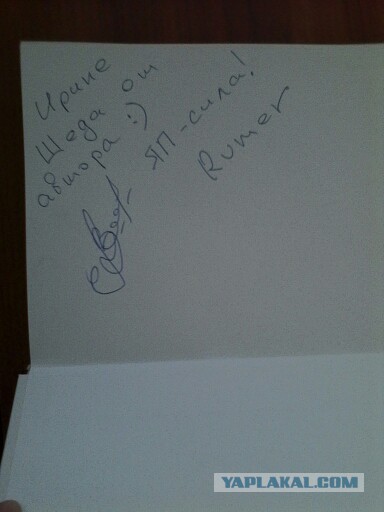 Ирине
Шеда от
автора :)
ЯП-сила!
Rumer
YAPLAKAL.COM